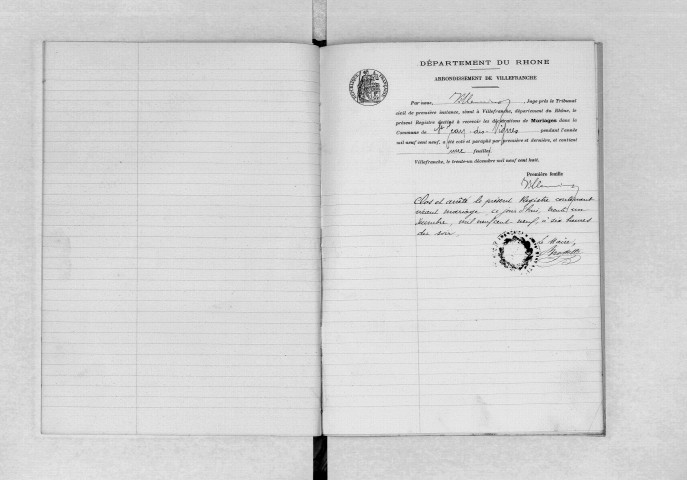 DÉPARTEMENT DU RHONE
ARRONDISSEMENT DE VILLEFRANCHE
Par nous, Juge près le Tribunal
civil de première instance, séant à Villefranche, département du Rhône, le
présent Registre destiné à recevoir les déclarations de Mariages dans la
Commune de St Jean-des-Vignes pendant l'année
mil neuf cent neuf, a été coté et paraphé par première et dernière, et contient
feuilles
Villefranche, le trente-un décembre mil neuf cent huit.
Première feuille
Clos et arrêté le présent Registre contenant
mariage ce jour d'hui, trente un
décembre, mil neuf cent neuf, à six heures
du soir.
Le Maire,